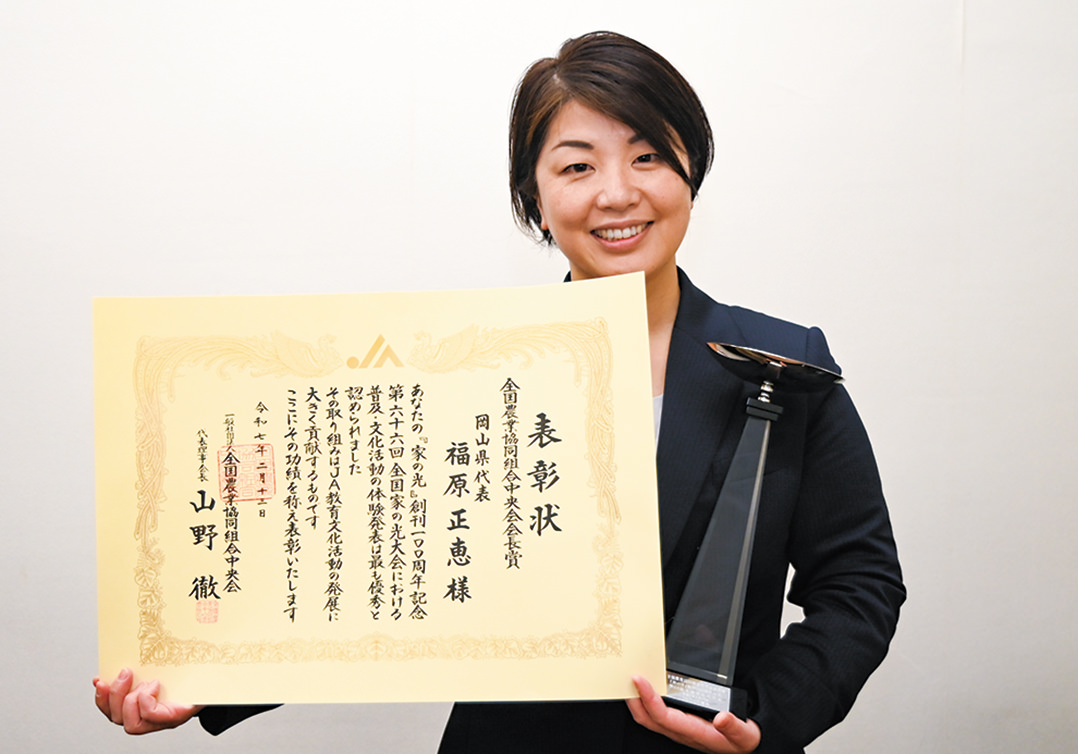 表彰状
全国農業協同組合中央会会長賞
岡山県代表
福原正恵様
あなたの『家の光』創刊一〇〇周年記念
第六十六回全国家の光大会における
普及・文化活動の体験発表は最も優秀と
認められました
その取り組みはJA教育文化活動の発展に
大きく貢献するものです
ここにその功績を称え表彰いたします
令和七年二月十三日
一般社団法人全国農業協同組合中央会
代表理事会長
山野徹